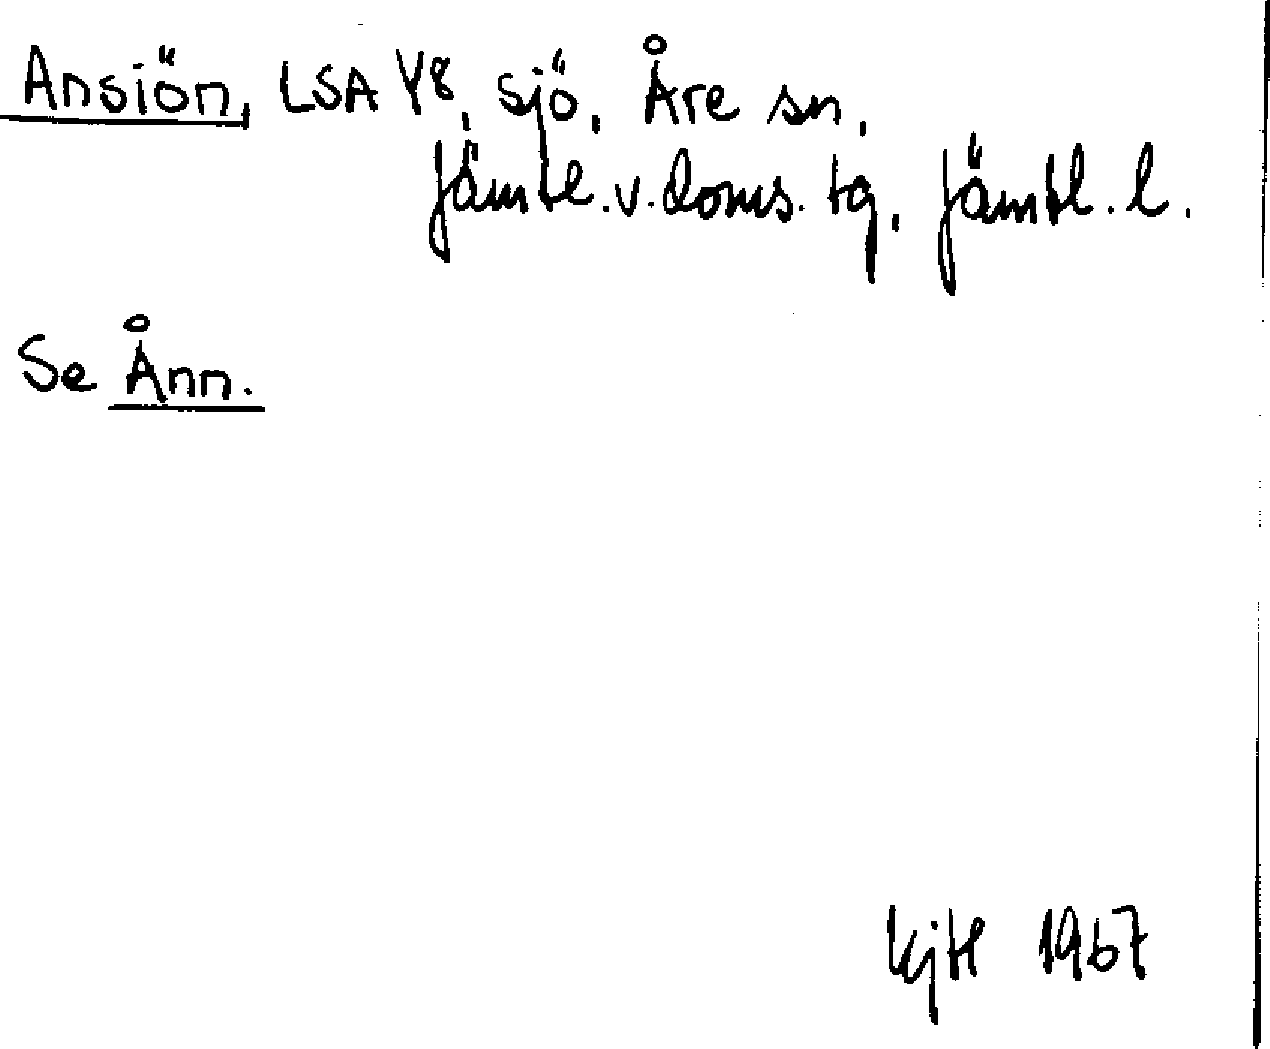 Ansiön, LSA Y8, sjö, Åre sn,
Jämtl. v. doms. tg, Jämtl. l.
Se Ånn.
1967